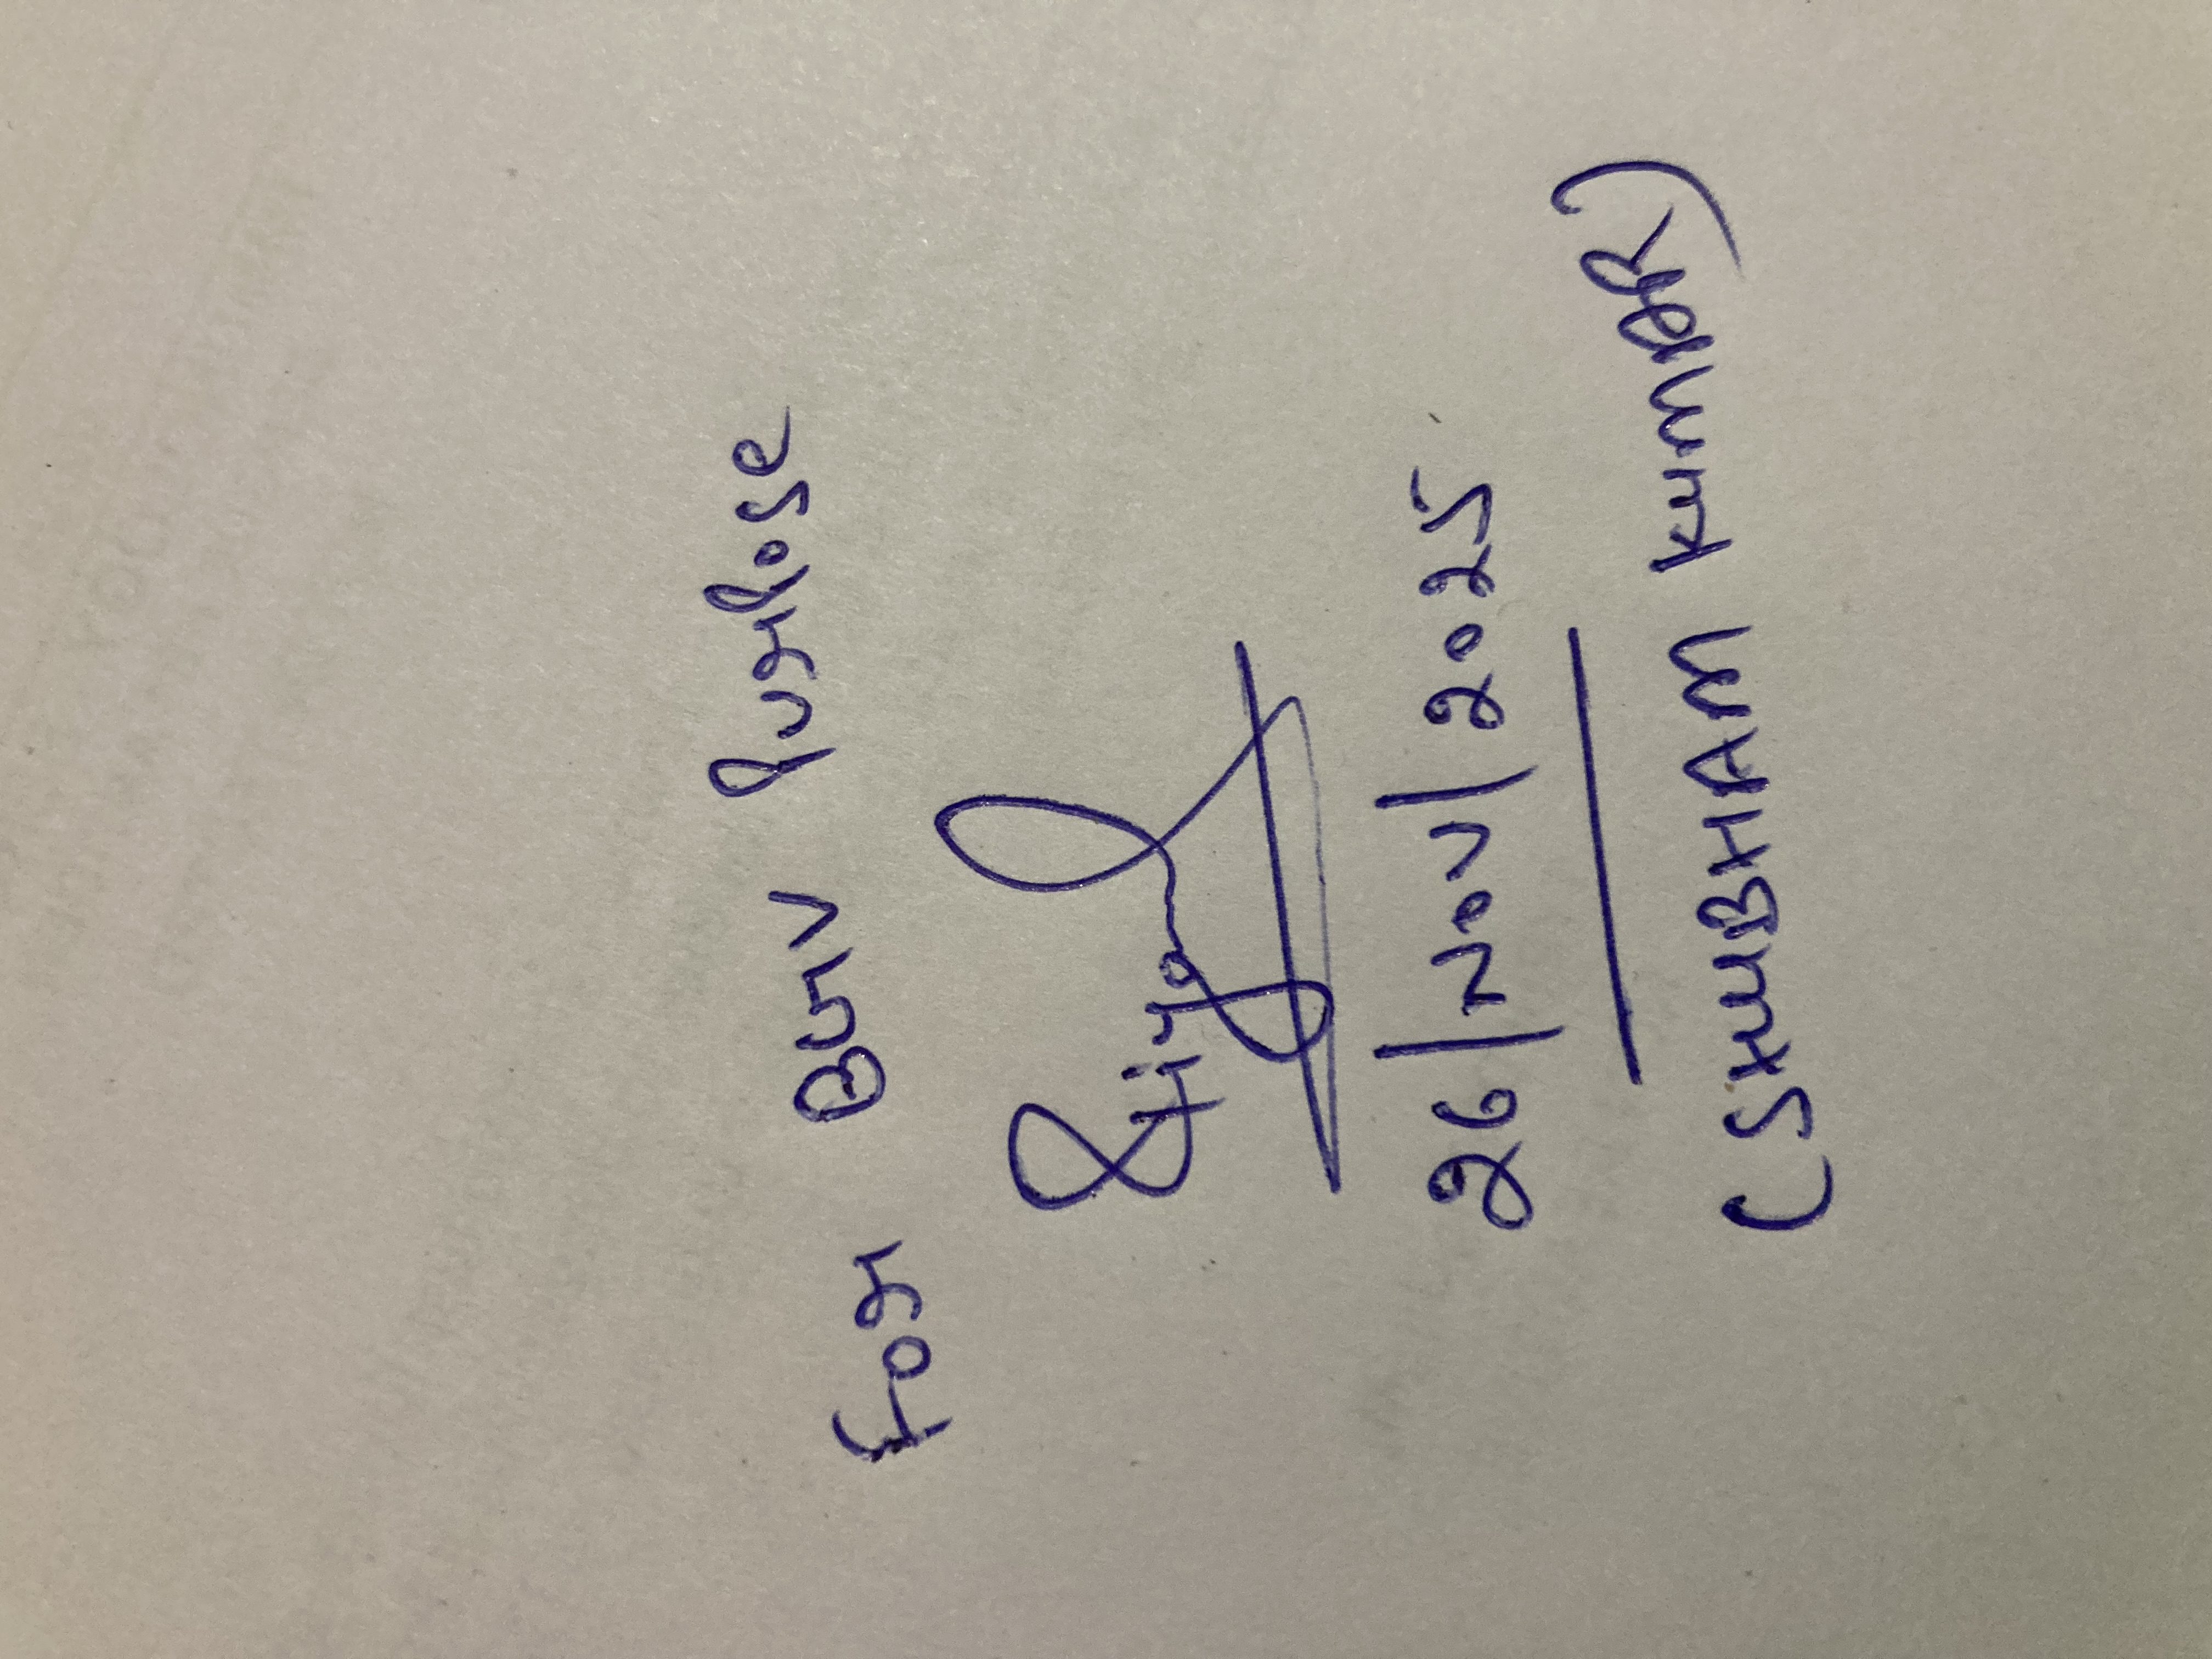 For BGV Purpose
26/Nov/2025
(SHUBHAM KUMAR)